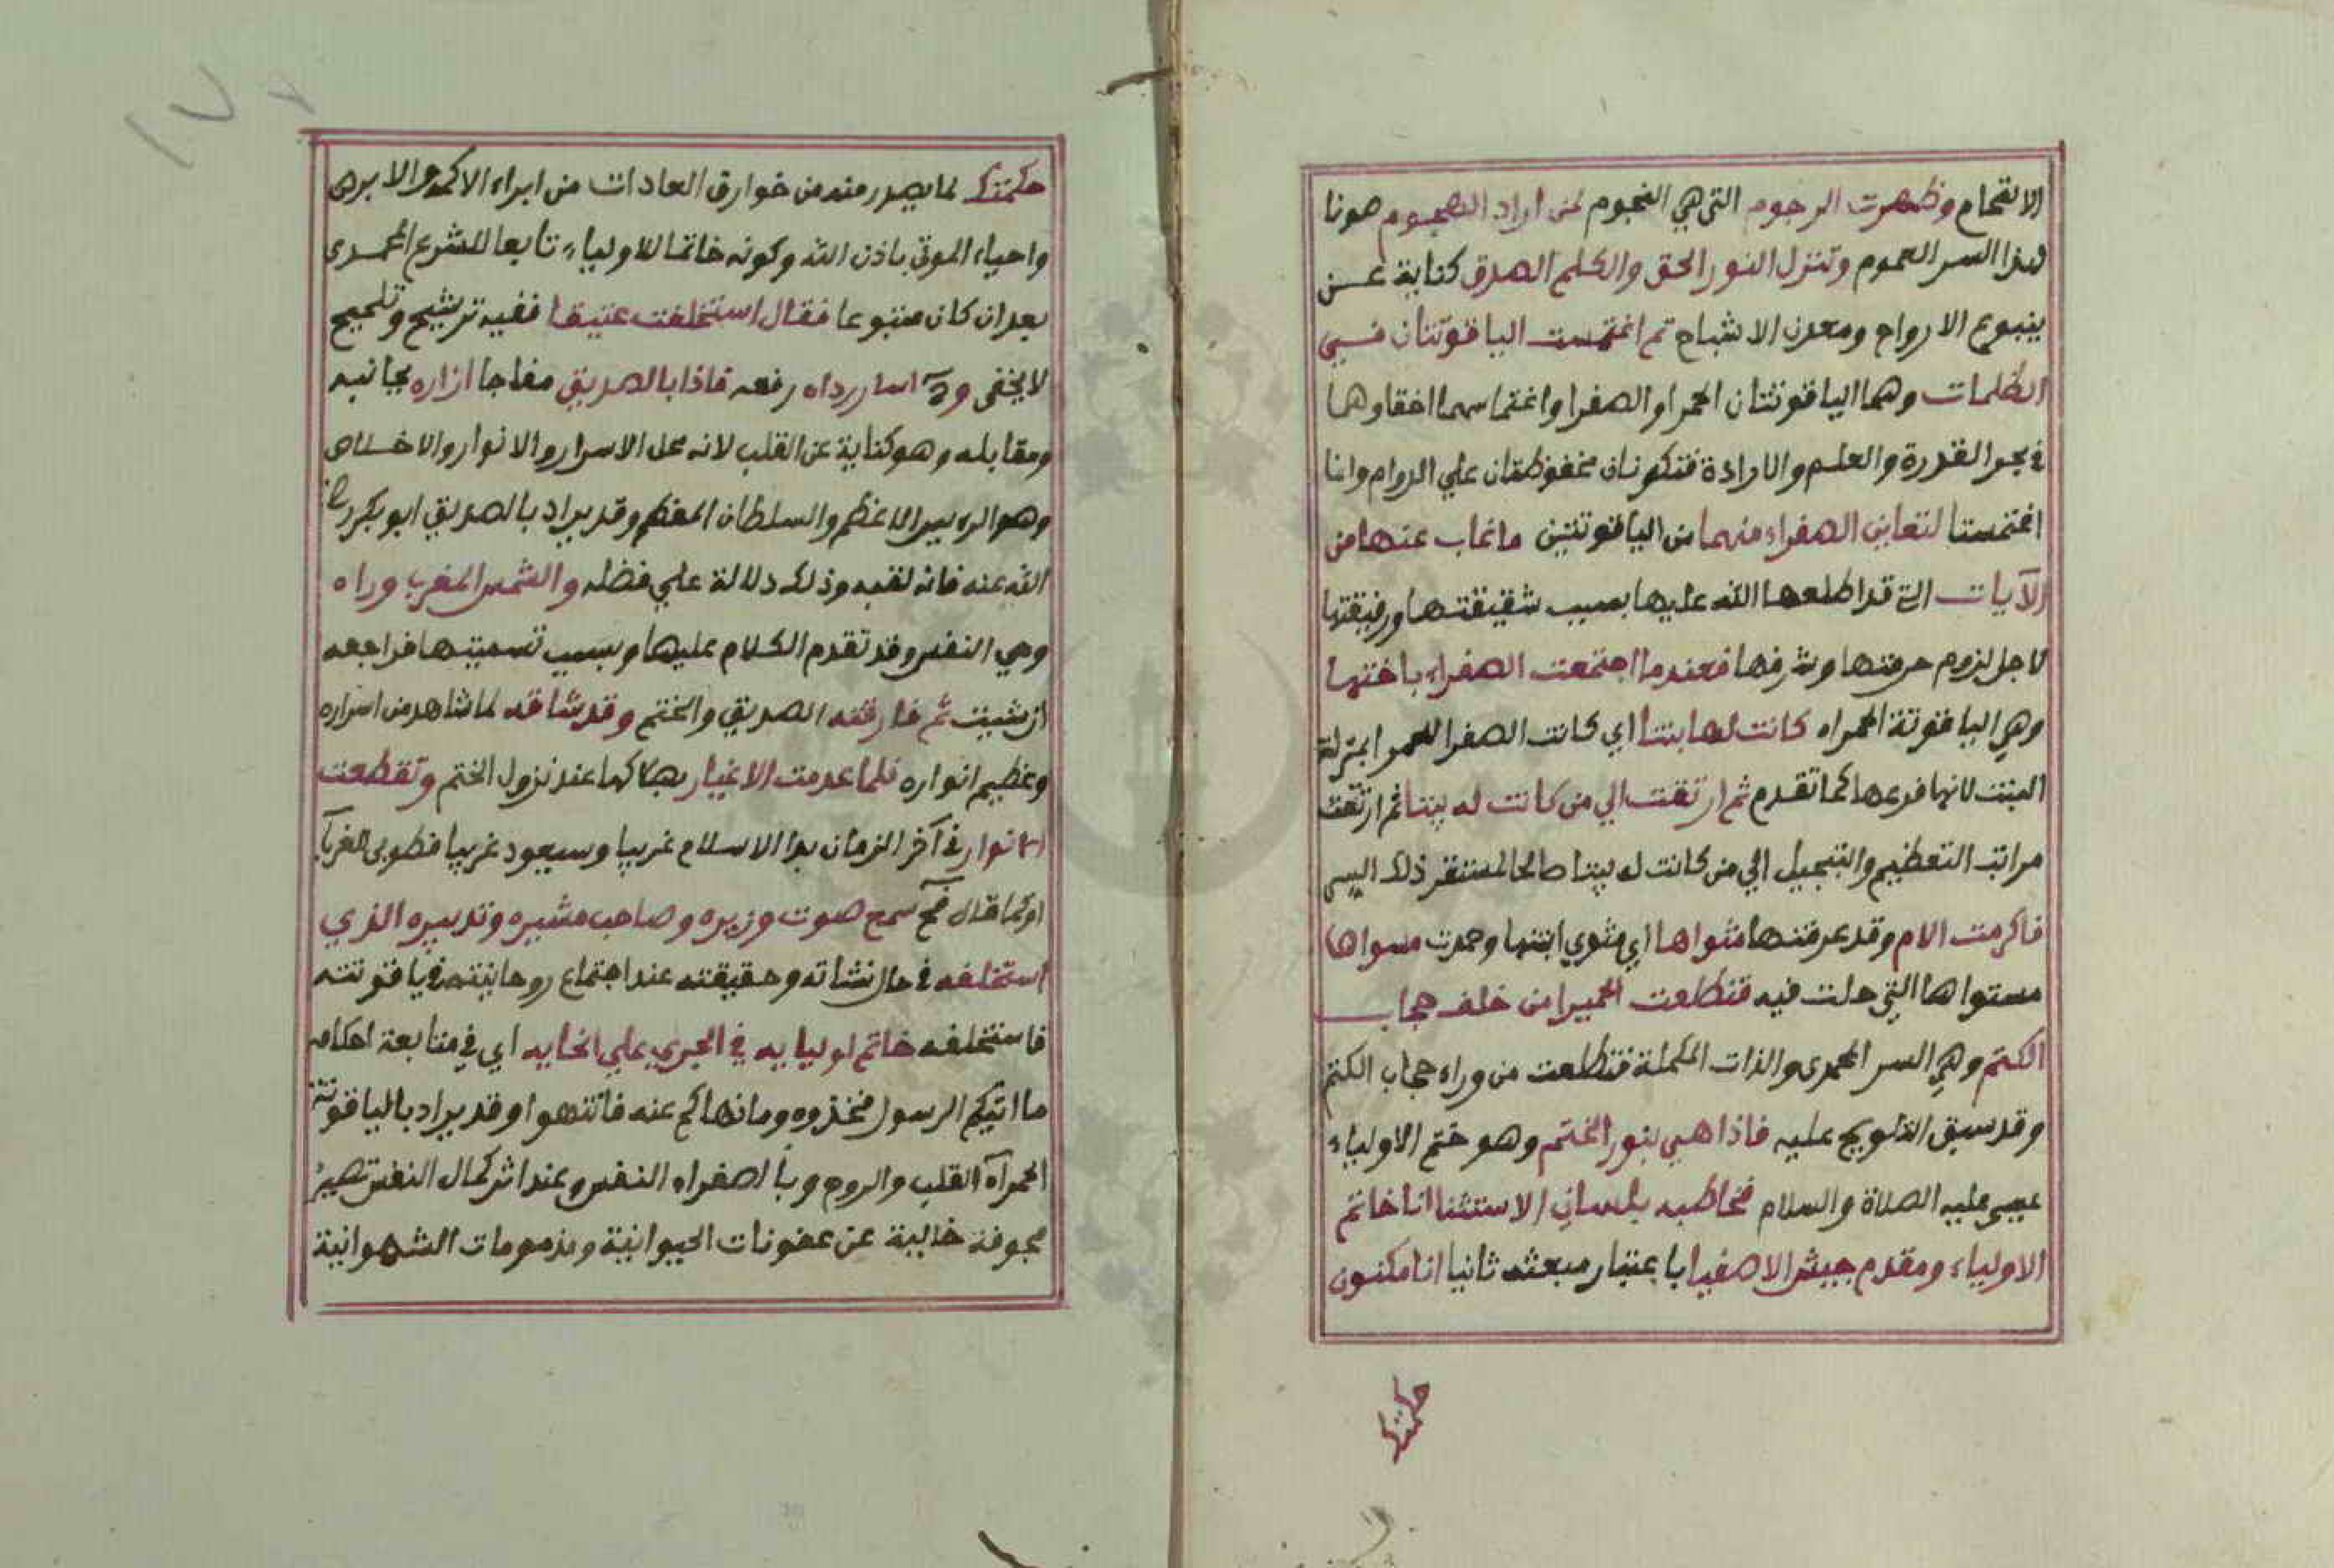 الاقتحام وظهرت الرجوم التي هي النجوم لمن اراد الهجوم صونا
لهذا السر العموم وتنزل النور الحق والكلم الصدق كناية عن
ينبوع الارواح ومعدن الاشباح ثم انغمست الياقوتتان في
الظلمات وهما الياقوتتان الحمرا والصفرا وانغماسهما اخفاوهما
في بحر القدرة والعلم والارادة فتكونان محفوظتان علي الدوام وانا
اغتمستا لتعاين الصفراء منهما من الياقوتتين ما غاب عنها من
الآيات التي قد اطلعها الله عليها بسبب شقيقتها ورفيقتها
لاجل لزوم حرمتها وشرفها فعندما اجتمعت الصفراء باختها
وهي الياقوتة الحمراء كانت لها بنتا اي كانت الصفرا للحمرا بمنزلة
البنت لانها فرعها كما تقدم ثم ارتقت الي من كانت له بيتا ثم ارتقت
مراتب التعظيم والتبجيل الي من كانت له بيتا صالحا لمستقر ذلك السر
فاكرمت الام وقد عرفتها مثواها اي مثوي ابنتها وحمدت مسواها
مستواها التي حلت فيه فتطلعت الحميرا من خلف حجاب
الكتم وهي السر المحمدي والذات المكملة فتطلعت من وراء حجاب الكتم
وقد سبق التلويح عليه فاذا هي بنور الختم وهو ختم الاولياء
عيسى عليه الصلاة والسلام فخاطبه بلسان الاستثنا انا خاتم
الاولياء ومقدم جيش الاصفيا باعتبار مبعثه ثانيا انا مكنون
حكمتك
١٧
حكمتك لما يصدر منه من خوارق العادات من ابراء الاكمه والابرص
واحياء الموتى باذن الله وكونه خاتما للاولياء تابعا للشرع المحمدي
بعد ان كان متبوعا فقال استخلفت عتيقا ففيه ترشيح وتلميح
لا يخفى رداه رفعه فاذا بالصديق مفاجا ازاره بجانبه
ومقابله وهو كناية عن القلب لانه محل الاسرار والانوار والاخلاص
وهو الرءيس الاعظم والسلطان المفخم وقد يراد بالصديق ابو بكر رضي
الله عنه فانه لقبه وذلك دلالة علي فضله والشمس المغرب وراه
وهي النفس وقد تقدم الكلام عليها وبسبب تسميتها فراجعه
ان شيت ثم فارقته الصديق والختم وقد شاقه لما شاهد من اسراره
وعظيم انواره فلما عدمت الاغيار عند نزول الختم وتقطعت
الانوار في آخر الزمان بدا الاسلام غريبا وسيعود غريبا فطوبى للغربا
او كما قال سمع صوت وزيره وصاحب مشيره وتدبيره الذي
استخلفه في حال نشاته وحقيقته عند اجتماع روحانيته في ياقوتته
فاستخلفه خاتم اوليايه في الجري علي انحايه اي في متابعة احكامه
ما اتيكم الرسول فخذوه وما نهاكم عنه فانتهوا وقد يراد بالياقوتة
الحمرآء القلب والروح وبالصفراء النفس وعند اثر كمال النفس تصير
مجوفة خالية عن عفونات الحيوانية ومذمومات الشهوانية